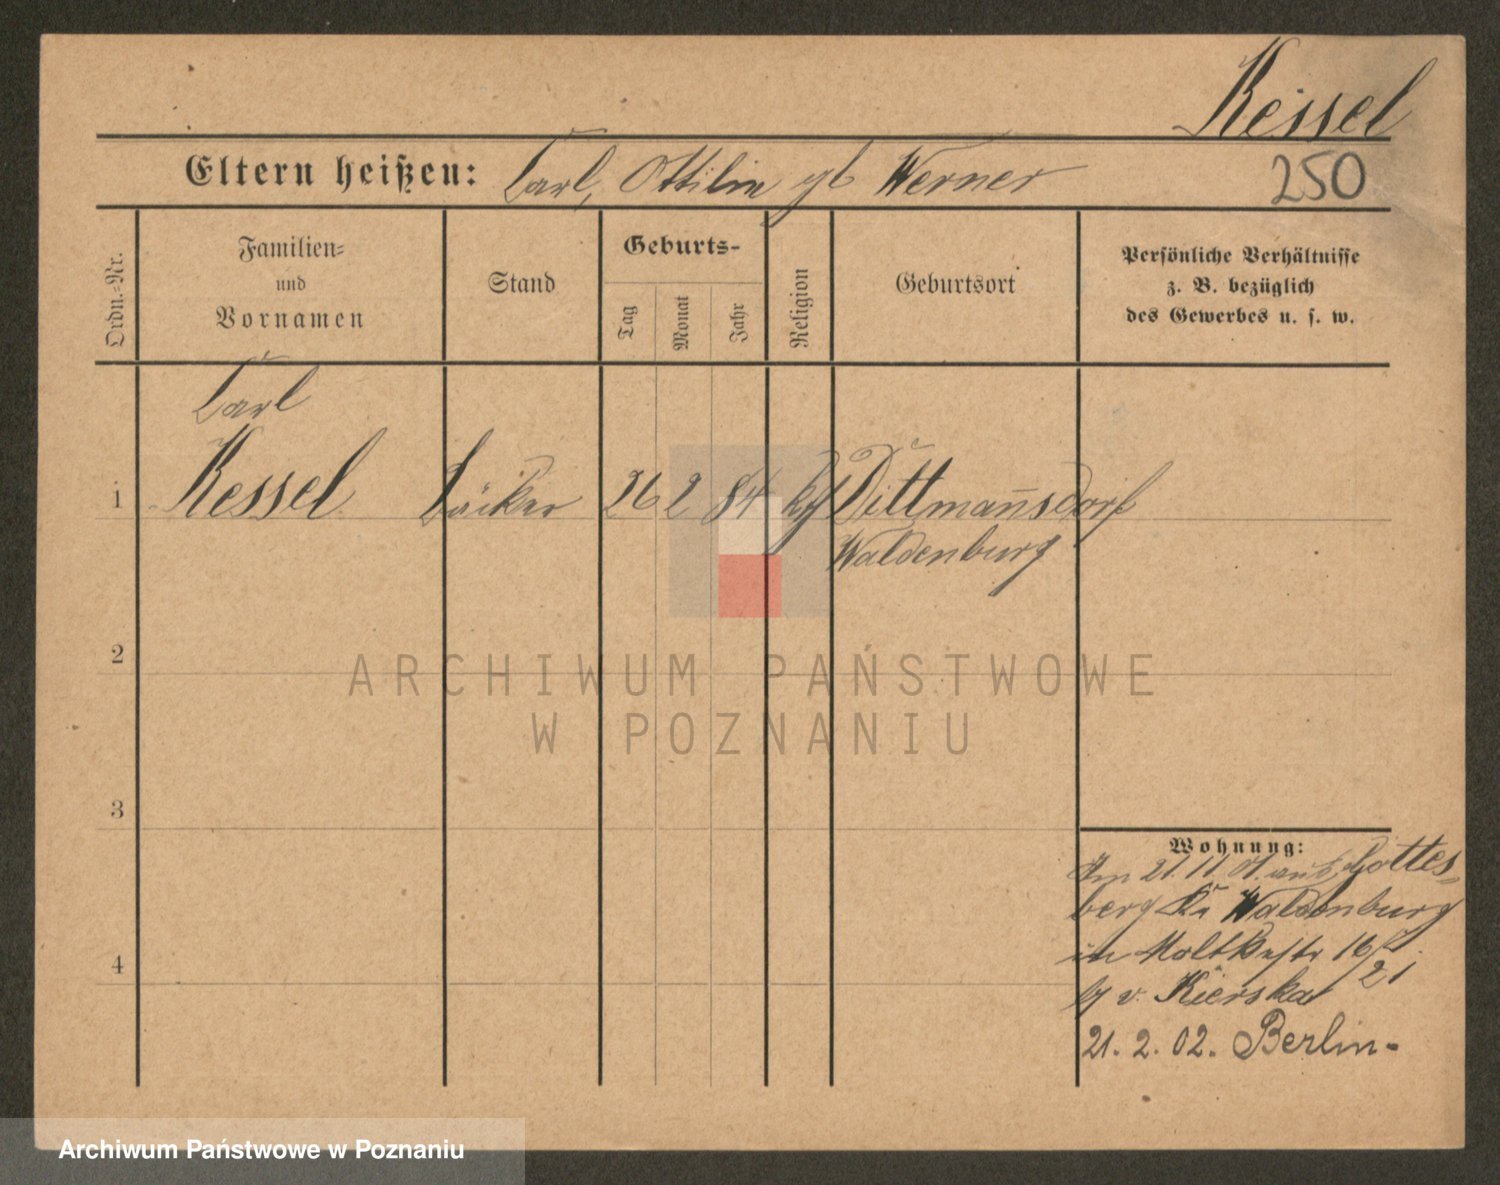 Kessel
Eltern heißen: Carl, Ottilie gb Werner
250
Ordn.-Nr.
Familien-
und
Vornamen
Stand
Geburts-
Tag
Monat
Jahr
Religion
Geburtsort
Persönliche Verhältnisse
z. B. bezüglich
des Gewerbes u. s. w.
Carl
1 Kessel Bäcker 26 2 84 Dittmannsdorf
Waldenburg
2
ARCHIWUM PAŃSTWOWE
W POZNANIU
3
Wohnung:
Am 21.11.01. aus Gottes-
berg Kr Waldenburg
in Moltkestr 16/21
b/ v. Kierska
4
21. 2. 02. Berlin-
Archiwum Państwowe w Poznaniu